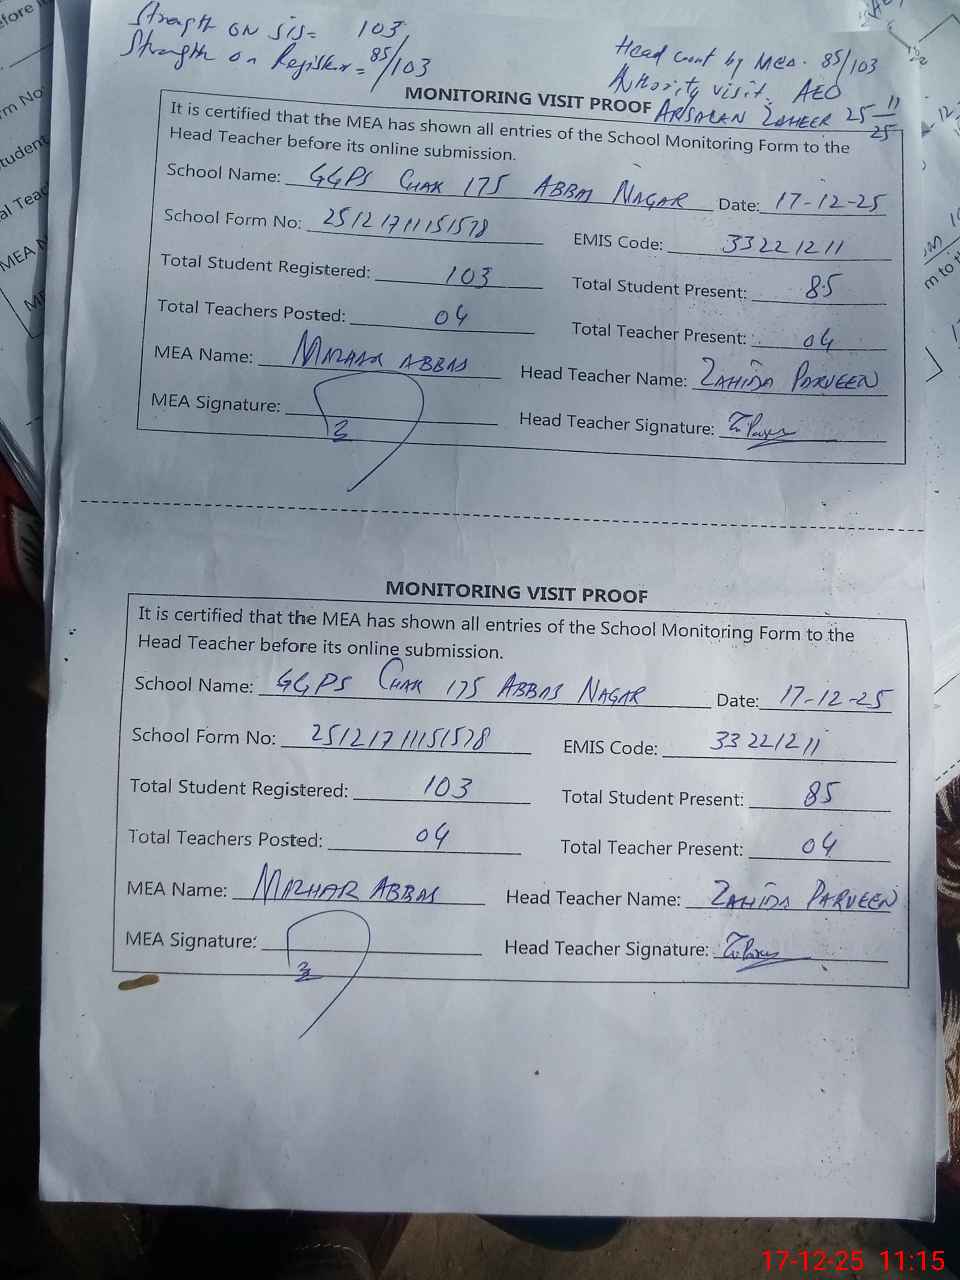 Strength on sis= 103,
Strength on Register= 85/103
Head count by Mea. 85/103
Authority visit. AEO
ARSALAN ZAHEER 25-11-25
MONITORING VISIT PROOF
It is certified that the MEA has shown all entries of the School Monitoring Form to the
Head Teacher before its online submission.
School Name: GGPS CHAK 175 ABBAS NAGAR Date: 17-12-25
School Form No: 25121711151578 EMIS Code: 33221211
Total Student Registered: 103 Total Student Present: 85
Total Teachers Posted: 04 Total Teacher Present: 04
MEA Name: MAZHAR ABBAS Head Teacher Name: ZAHIDA PARVEEN
MEA Signature: Head Teacher Signature:
MONITORING VISIT PROOF
It is certified that the MEA has shown all entries of the School Monitoring Form to the
Head Teacher before its online submission.
School Name: GGPS CHAK 175 ABBAS NAGAR Date: 17-12-25
School Form No: 25121711151578 EMIS Code: 33221211
Total Student Registered: 103 Total Student Present: 85
Total Teachers Posted: 04 Total Teacher Present: 04
MEA Name: MAZHAR ABBAS Head Teacher Name: ZAHIDA PARVEEN
MEA Signature: Head Teacher Signature:
17-12-25 11:15